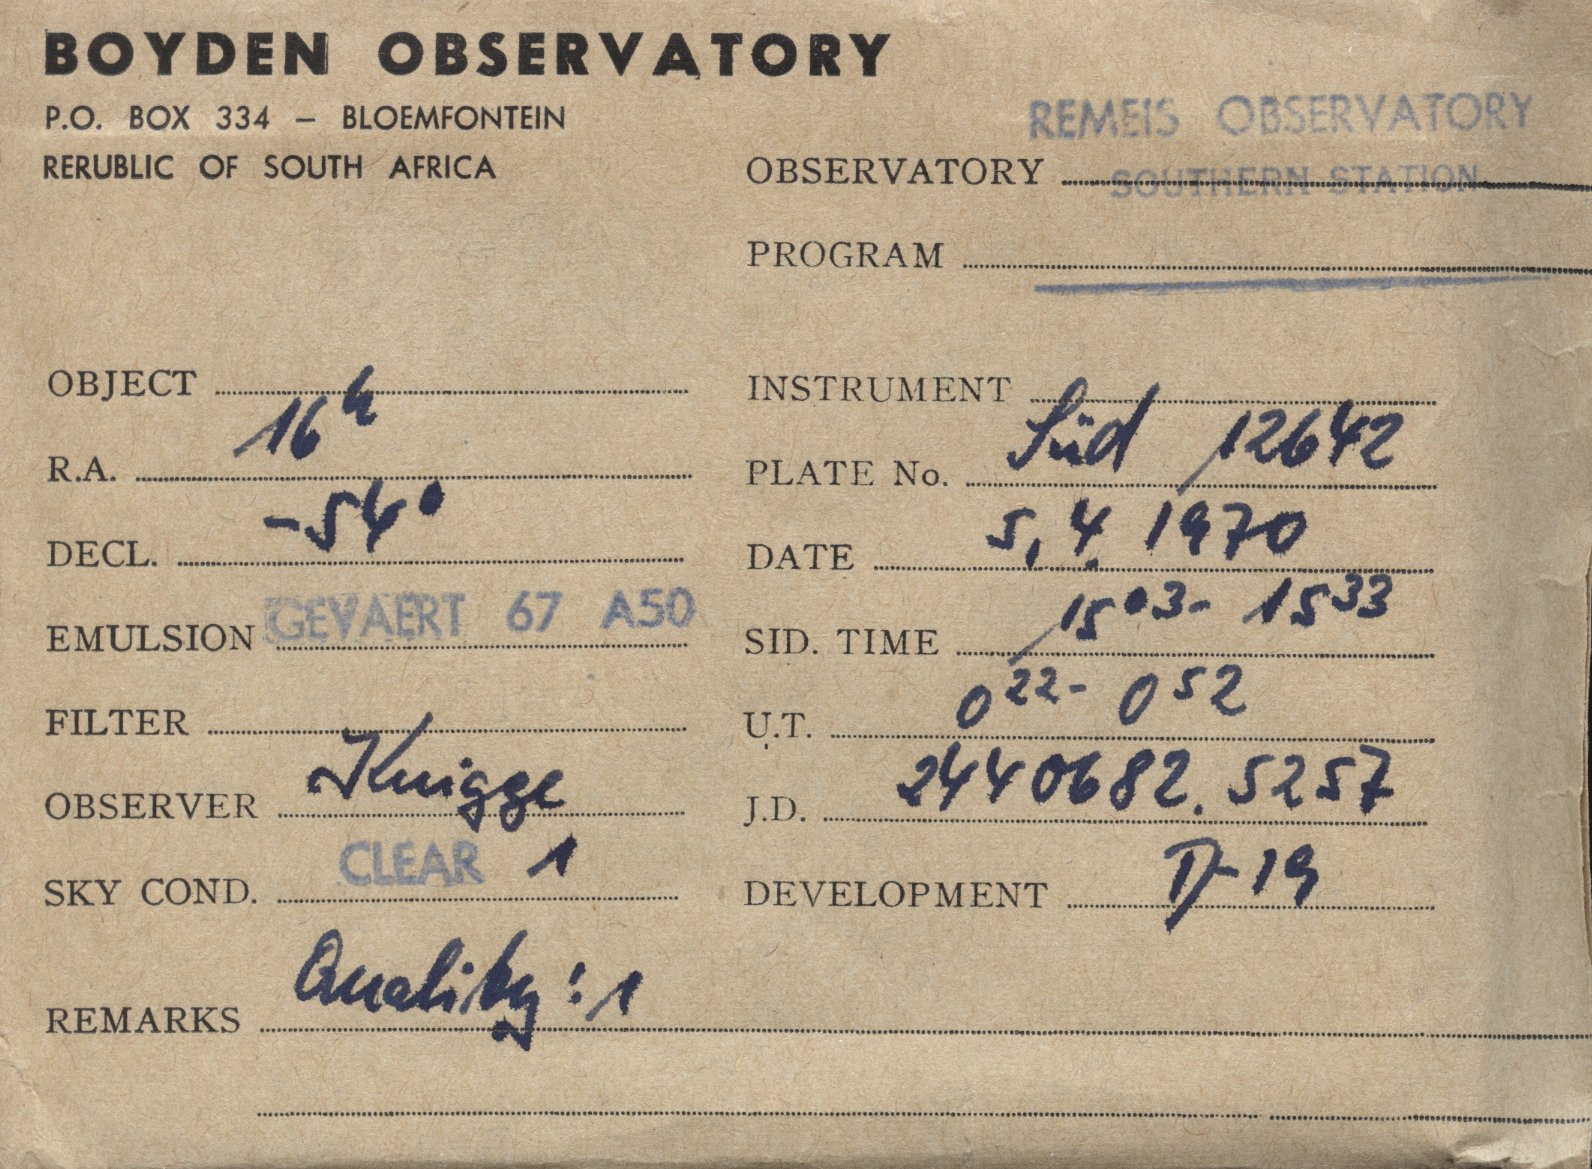 BOYDEN OBSERVATORY
P.O. BOX 334 – BLOEMFONTEIN
RERUBLIC OF SOUTH AFRICA
REMEIS OBSERVATORY
OBSERVATORY SOUTHERN STATION
PROGRAM
OBJECT
R.A. 16h
DECL. -54°
EMULSION GEVAERT 67 A50
FILTER
OBSERVER Knigge
SKY COND. CLEAR 1
INSTRUMENT
PLATE No. Süd 12642
DATE 5.4.1970
SID. TIME 15 03 - 15 33
U.T. 0 22 - 0 52
J.D. 2440682.5257
DEVELOPMENT D-19
REMARKS Quality: 1